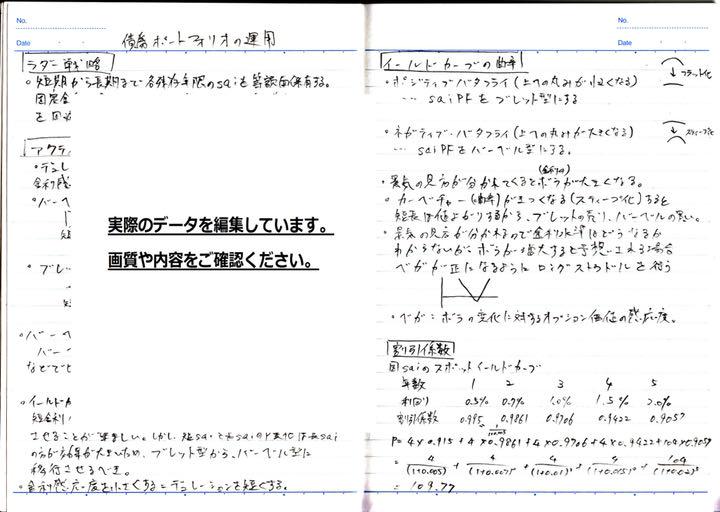 No.
Date
債券ポートフォリオの運用
ラダー戦略
・短期から長期まで各残存年限のsaiを等額面保有する。
固定金
を回
アクティ
・デュレ
金利感
・バーベ
短
・ブレッ
・バーベ
バーベ
などでヒ
・イールドカ
短金利
させることが望ましい。しかし、短saiと長saiの
の方が効率が大きいため、ブレット型から、バーベル型に
移行させるべき。
・金利感応度を小さくする=デュレーションを短くする。
実際のデータを編集しています。
画質や内容をご確認ください。
No.
Date
イールドカーブの曲率
・ポジティブバタフライ(上への丸みが小さくなる)
フラット化
… sai PFをブレット型にする
・ネガティブ・バタフライ(上への丸みが大きくなる)
スティープ化
… sai PFをバーベル型にする。
(金利の)
・景気の見方が分かれてくるとボラが大きくなる。
・カーベチャー(曲率)がきつくなる(スティープ化)すると
短長は値上がりするから、ブレットの売り、バーベルの買い。
・景気の見方が分かれるので金利水準はどうなるか
わからないが、ボラが増大すると予想される場合
ベガが正になるようにロングストラドルを行う
・ベガ:ボラの変化に対するオプション価値の感応度。
割引係数
国saiのスポットイールドカーブ
年数 1 2 3 4 5
利回り 0.5% 0.7% 1.0% 1.5% 2.0%
割引係数 0.995 0.9861 0.9706 0.9422 0.9057
P= 4×0.915 + 4×0.9861 + 4×0.9706 + 4×0.9422 + 104×0.9057
= 4/(1+0.005) + 4/(1+0.007)² + 4/(1+0.01)³ + 4/(1+0.015)⁴ + 104/(1+0.02)⁵
= 109.77